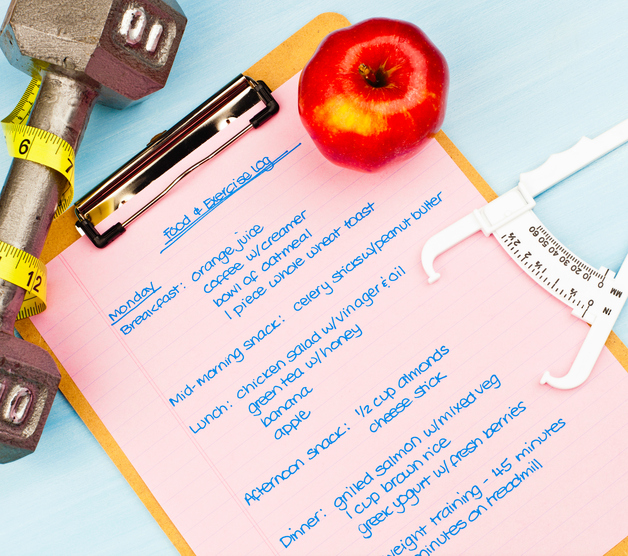 Food & Exercise Log
Monday
Breakfast: orange juice
coffee w/creamer
bowl of oatmeal
1 piece whole wheat toast
Mid-morning snack: celery sticks w/peanut butter
Lunch: chicken salad w/vinager & oil
green tea w/honey
banana
apple
Afternoon snack: 1/2 cup almonds
cheese stick
Dinner: grilled salmon w/mixed veg
1 cup brown rice
greek yogurt w/fresh berries
weight training - 45 minutes
minutes on treadmill
10
10
6
7
12
60 50 40 30 20 10 0
MM
2½ 2 1½ 1 ½ 0
IN